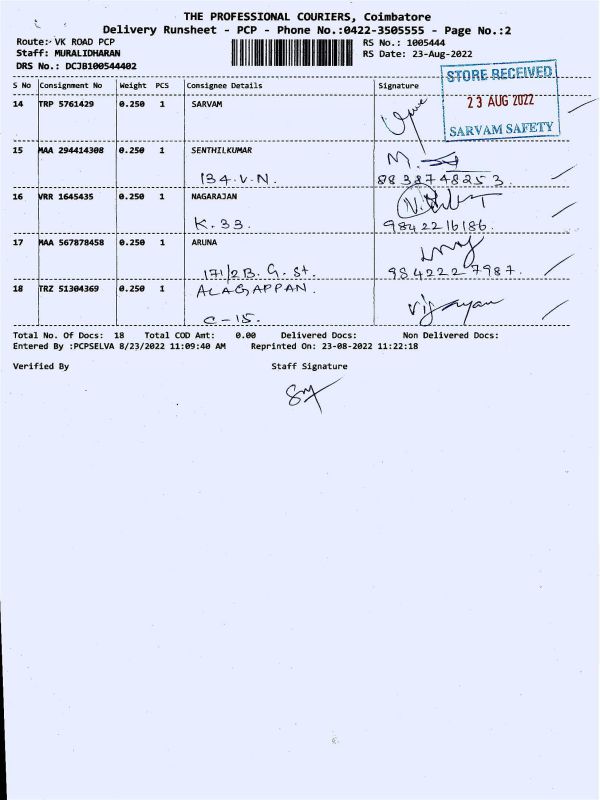 THE PROFESSIONAL COURIERS, Coimbatore
Delivery Runsheet - PCP - Phone No.:0422-3505555 - Page No.:2
Route:- VK ROAD PCP
RS No.: 1005444
Staff: MURALIDHARAN
RS Date: 23-Aug-2022
DRS No.: DCJB100544402
STORE RECEIVED
23 AUG 2022
SARVAM SAFETY
S No Consignment No Weight PCS Consignee Details Signature
14 TRP 5761429 0.250 1 SARVAM
15 MAA 294414308 0.250 1 SENTHILKUMAR
134.V.N. 8838748253.
16 VRR 1645435 0.250 1 NAGARAJAN
K.33. 9842216186.
17 MAA 567878458 0.250 1 ARUNA
171/2B. G. St. 9842227987.
18 TRZ 51304369 0.250 1 ALAGAPPAN.
C-15. Vijayan
Total No. Of Docs: 18 Total COD Amt: 0.00 Delivered Docs: Non Delivered Docs:
Entered By :PCPSELVA 8/23/2022 11:09:40 AM Reprinted On: 23-08-2022 11:22:18
Verified By Staff Signature